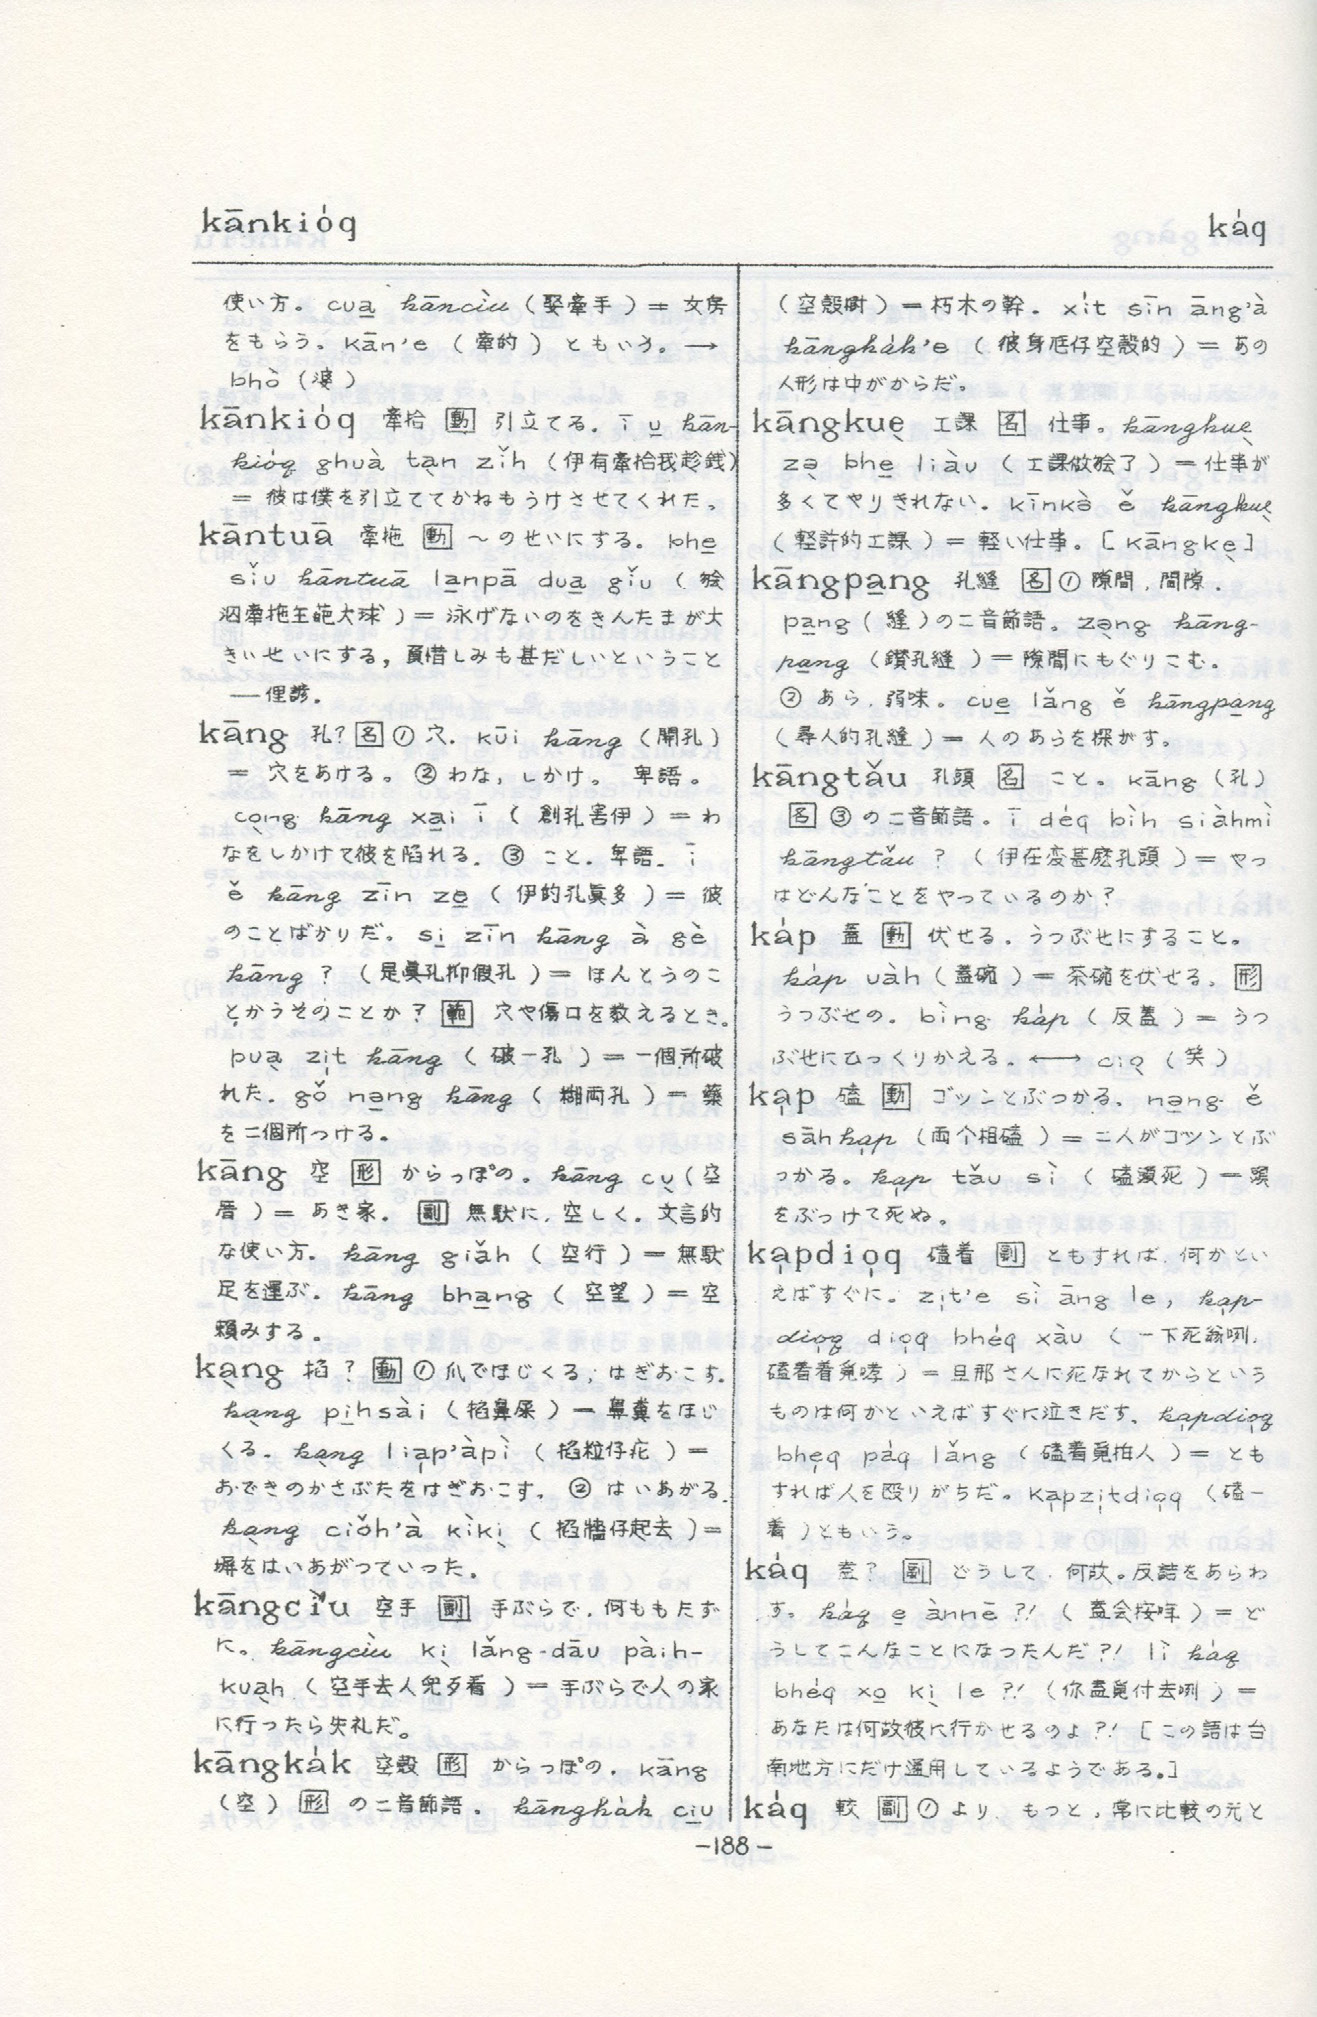 kānkio̍q
ka̍q
使い方。cua̱ kānciu̇̀ (娶牽手) = 女房
をもらう。kān'e (牽的) ともいう。→
bhò (婆)
kānkio̍q 牽拾 動 引立てる。ī u̱ kān-
kio̍q ghuà tạn zǐh (伊有牽拾我趁銭)
= 彼は僕を引立ててかねもうけさせてくれた。
kāntuā 牽拖 動 〜のせいにする。bhe̱
sǐu kāntuā la̱npā dua̱ gǐu (
泅牽拖 大球) = 泳げないのをきんたまが大
きいせいにする, 負惜しみも甚だしいということ
—俚諺。
kāng 孔? 名 ① 穴。kūi kāng (開孔)
= 穴をあける。② わな, しかけ。卑語。
cọng kāng xa̱i ī (創孔害伊) = わ
なをしかけて彼を陥れる。③ こと。卑語。ī
ě kāng zīn ze̱ (伊的孔真多) = 彼
のことばかりだ。si̱ zīn kāng à gè
kāng ? (是眞孔抑假孔) = ほんとうのこ
とかうそのことか? 範 穴や傷口を数えるとき。
puạ zịt kāng (破一孔) = 一個所破
れた。gǒ nạng kāng (糊両孔) = 薬
を二個所つける。
kāng 空 形 からっぽの。kāng cụ (空
厝) = あき家。副 無駄に, 空しく。文言的
な使い方。kāng giǎh (空行) = 無駄
足を運ぶ。kāng bha̱ng (空望) = 空
頼みする。
kạng 掐? 動 ① 爪でほじくる, はぎおこす。
kạng pi̱hsài (掐鼻屎) = 鼻糞をほじ
くる。kạng liạp'àpì (掐粒仔疕) =
おできのかさぶたをはぎおこす。② はいあがる。
kạng ciǒh'à kìkị (掐牆仔起去) =
塀をはいあがっていった。
kāngcǐ'u 空手 副 手ぶらで, 何ももたず
に。kāngciu̇̀ kị lǎng-dāu pàih-
kuạh (空手去人兜歹看) = 手ぶらで人の家
に行ったら失礼だ。
kāngka̍k 空殻 形 からっぽの。kāng
(空) 形 の二音節語。kāngka̍k ciu̱
(空殻樹) = 朽木の幹。xi̍t sīn āng'à
kāngka̍k'e (彼身尫仔空殻的) = あの
人形は中がからだ。
kāngkuẹ 工課 名 仕事。kāngkuẹ
zə̱ bhe̱ liàu (工課做 了) = 仕事が
多くてやりきれない。kīnkà ě kāngkuẹ
(軽許的工課) = 軽い仕事。[kāngkẹ]
kāngpa̱ng 孔縫 名 ① 隙間, 間隙。
pa̱ng (縫) の二音節語。zə̣ng kāng-
pa̱ng (鑽孔縫) = 隙間にもぐりこむ。
② あら, 弱味。cue̱ lǎng ě kāngpa̱ng
(尋人的孔縫) = 人のあらを探がす。
kāngtǎu 孔頭 名 こと。kāng (孔)
名 ③ の二音節語。ī de̍q bìh siàhmì
kāngtǎu ? (伊在変甚麽孔頭) = やつ
はどんなことをやっているのか?
ka̍p 蓋 動 伏せる, うつぶせにすること。
ka̍p uàh (蓋碗) = 茶碗を伏せる。形
うつぶせの。bìng ka̍p (反蓋) = うつ
ぶせにひっくりかえる。←→ ciọ (笑)
kạp 磕 動 ゴツンとぶつかる。nạng ě
sāhkạp (両个相磕) = 二人がコツンとぶ
つかる。kạp tǎu sì (磕頭死) = 頭
をぶつけて死ぬ。
kạpdiọq 磕着 副 ともすれば, 何かとい
えばすぐに。zịt'e sì āng le, kạp-
diọq diọq bhe̍q xàu (一下死翁咧,
磕着着覓哮) = 旦那さんに死なれてからという
ものは何かといえばすぐに泣きだす。kạpdiọq
bhẹq pa̍q lǎng (磕着覓拍人) = とも
すれば人を殴りがちだ。kạpzịtdiọq (磕一
着) ともいう。
ka̍q 蓋? 副 どうして, 何故。反詰をあらわ
す。ka̍q e̱ ànnē ?! (蓋会按哖) = ど
うしてこんなことになったんだ?! lì ka̍q
bhe̍q xo̱ kị le ?! (你蓋覓付去咧) =
あなたは何故彼に行かせるのよ?! [この語は台
南地方にだけ通用しているようである。]
ka̍q 較 副 ① より, もっと, 常に比較の元と
-188-